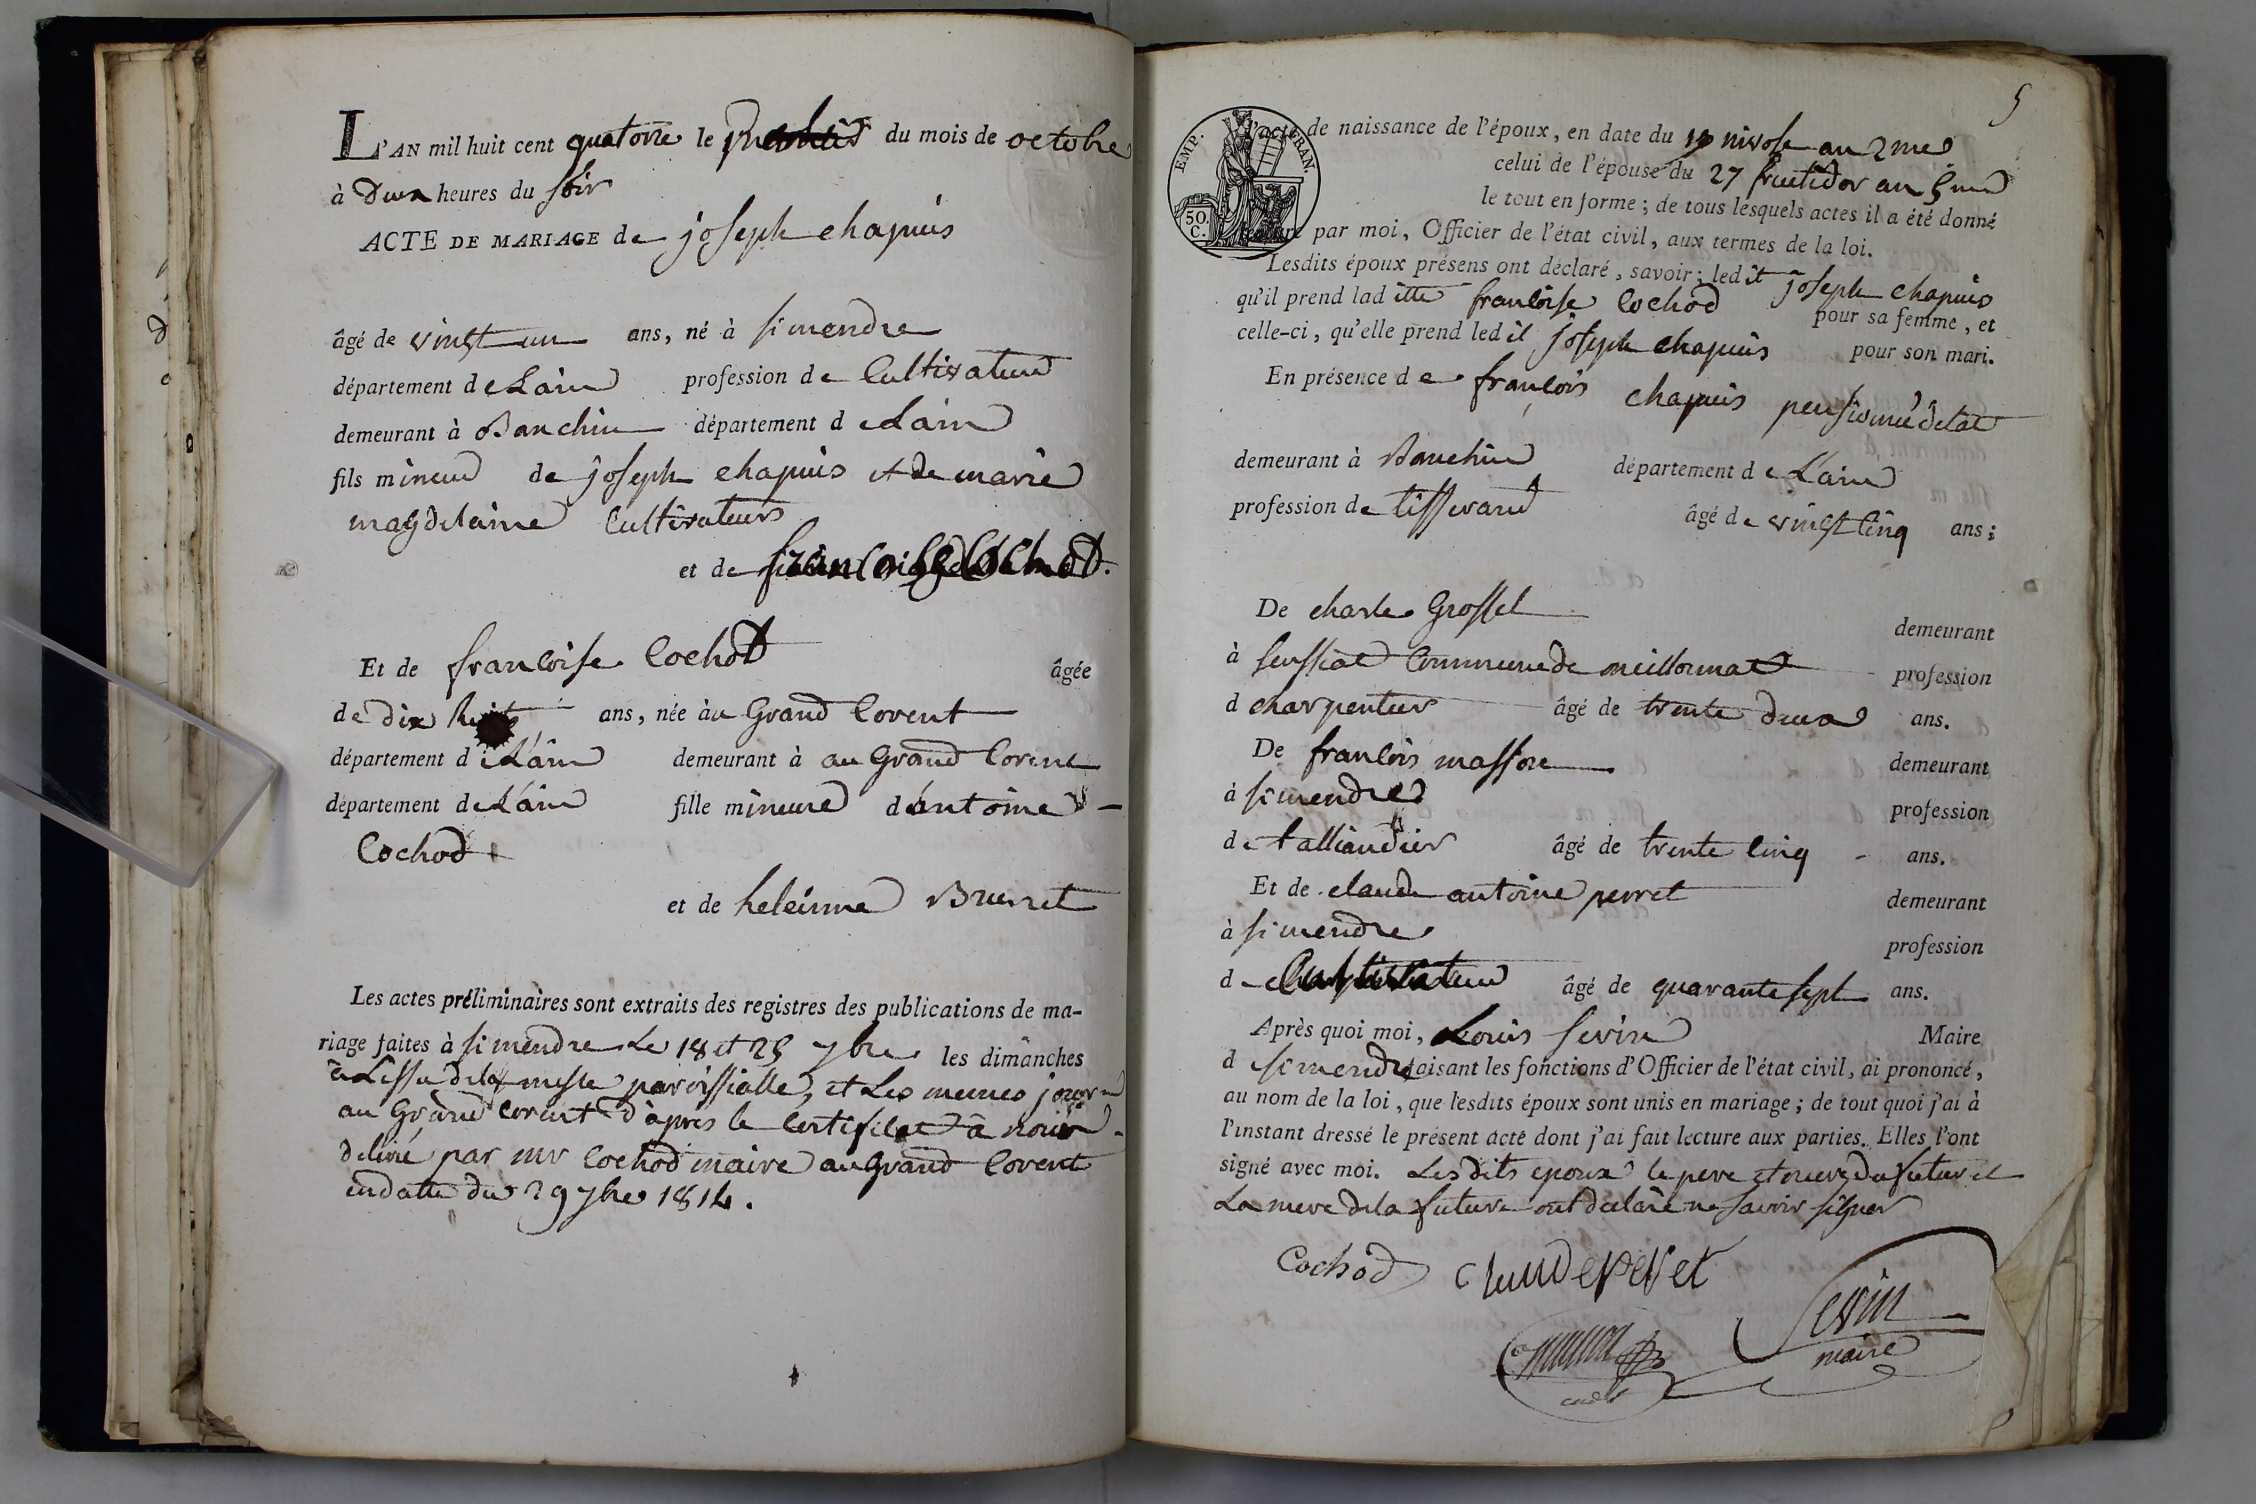 L'AN mil huit cent quatorze le du mois de octobre
à deux heures du soir
ACTE DE MARIAGE de joseph chapuis
âgé de vingt un ans, né à simendre
département de Lain profession de Cultivateur
demeurant à Banchin département de Lain
fils mineur de joseph chapuis et de marie
magdelaine Cultivateurs
et de
Et de francoise Cochod âgée
de dix huit ans, née au Grand Corent
département de L'ain demeurant à au Grand Corent
département de L'ain fille mineure d'antoine
Cochod
et de heleinne Brunet
Les actes préliminaires sont extraits des registres des publications de ma-
riage faites à simendre Le 18 et 25 7bre les dimanches
à Lissu dela messe paroissialle, et Les memes jours
au Grand Corent d'apres le Certificat à nous
delivré par mr Cochod maire au Grand Corent
en datte du 29 7bre 1814.
5
EMP. FRAN.
50.
C.
l'acte de naissance de l'époux, en date du 19 nivose an 2me
celui de l'épouse du 27 fructidor an 5me
le tout en forme; de tous lesquels actes il a été donné
lecture par moi, Officier de l'état civil, aux termes de la loi.
Lesdits époux présens ont déclaré, savoir: ledit joseph chapuis
qu'il prend laditte francoise Cochod pour sa femme, et
celle-ci, qu'elle prend ledit joseph chapuis pour son mari.
En présence de francois chapuis pensionné detat
demeurant à Banchin département de L'ain
profession de tisserand âgé de vingt cinq ans;
De charle Grosset demeurant
à senssiat Commune de meillonnat profession
d charpentier âgé de trente deux ans.
De francois masson demeurant
à simendre profession
de talliandier âgé de trente cinq ans.
Et de claude antoine perret demeurant
à simendre profession
de Cultivateur âgé de quarante sept ans.
Après quoi moi, Louis sevin Maire
d simendre faisant les fonctions d'Officier de l'état civil, ai prononcé,
au nom de la loi, que lesdits époux sont unis en mariage; de tout quoi j'ai à
l'instant dressé le présent acte dont j'ai fait lecture aux parties. Elles l'ont
signé avec moi. Les dits epoux le pere et mere du futur et
La mere dela future ont declaré ne savoir signer
Cochod claude peret
Sevin
maire